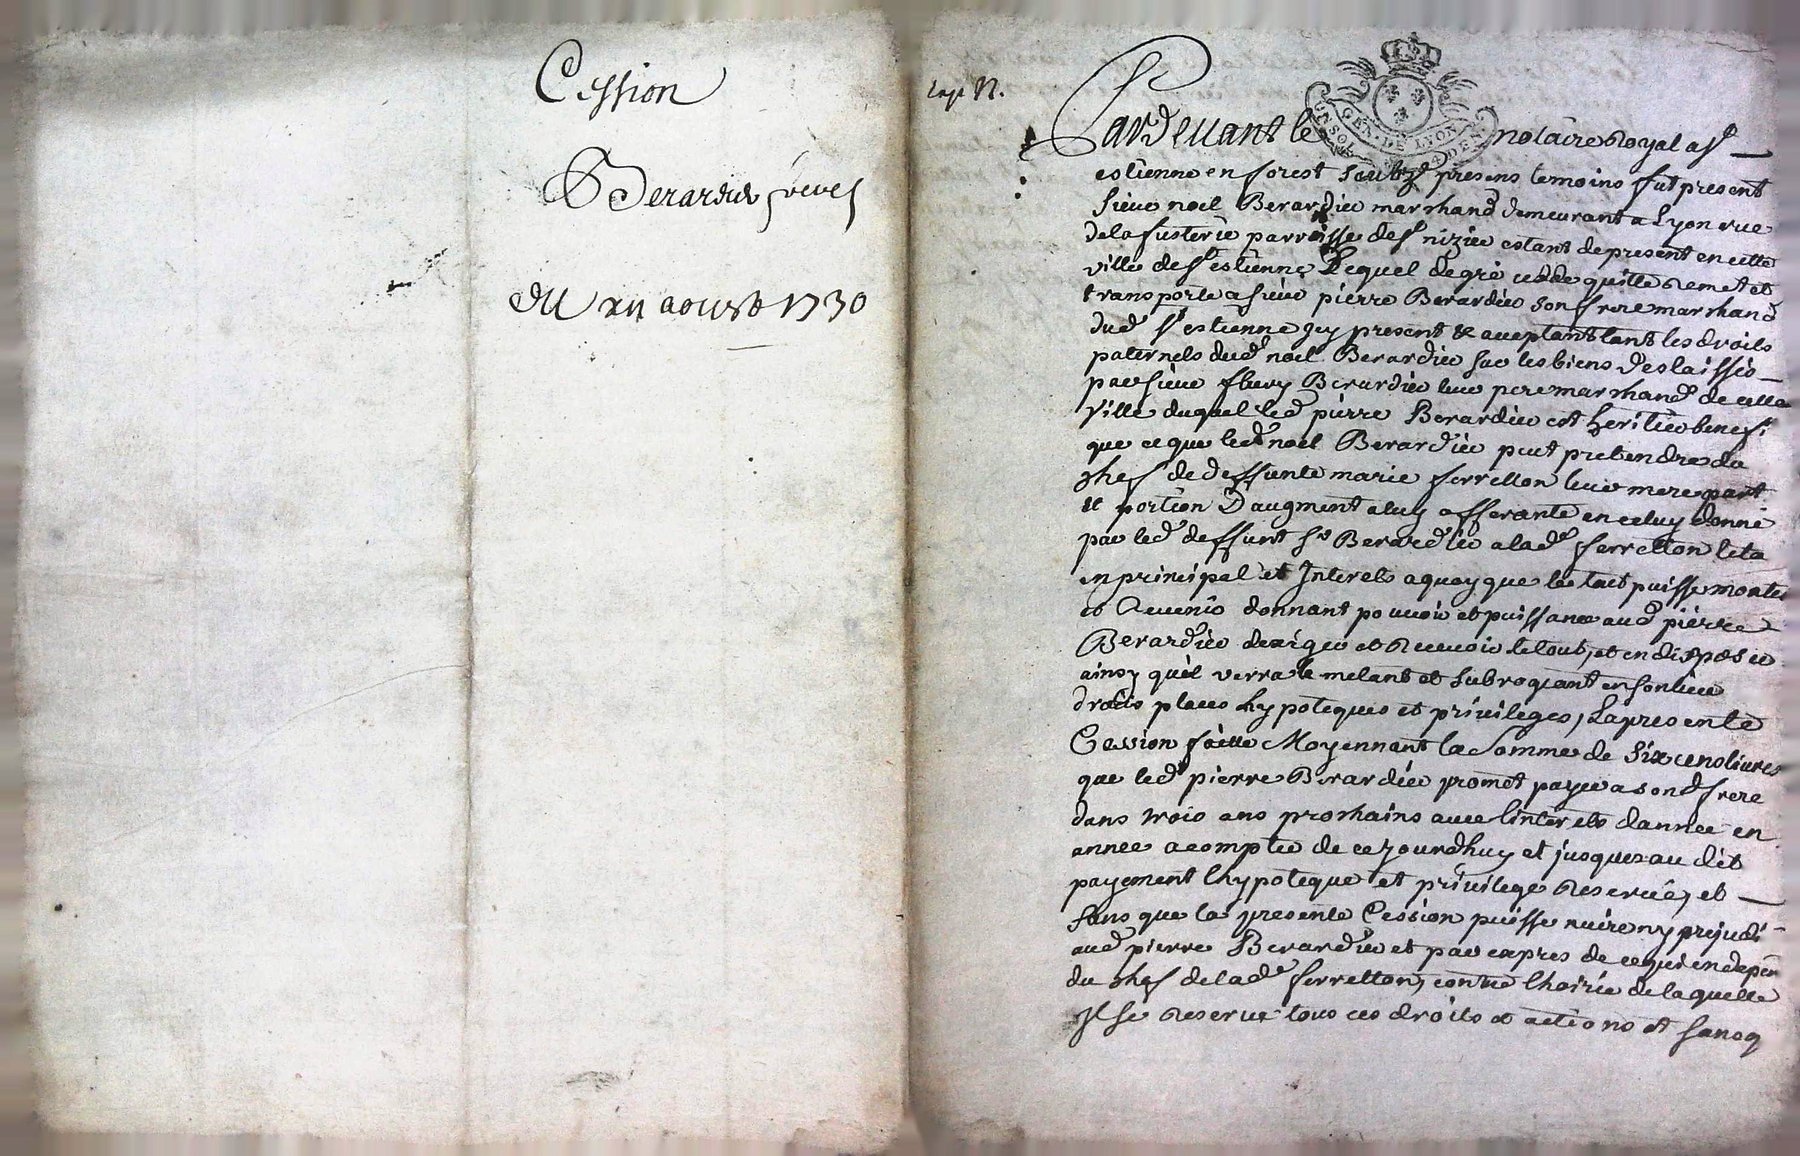 Cession
Berardier freres
du aoust 1730
Pardevant le notaire Royal a st
estienne en forest soubzne presens temoins fut present
sieur noel Berardier marchand demeurant a Lyon rue
de la fusterie parroisse de st nizier estant de present en cette
ville de st estienne Lequel de gré cedde quitte remet et
transporte a sieur pierre Berardier son frere marchand
dud st estienne icy present & acceptant tant les droits
paternels dud noel Berardier sur les biens deslaissés
par sieur fleury Berardier leur pere marchand de cette
ville duquel led pierre Berardier est heritier benefi
que ce que led noel Berardier peut pretendre du
chef de deffunte marie ferretton leur mere part
et portion D'augment a luy afferante en celuy donné
par led deffunt sr Berardier a lad ferretton le ta
en principal et Interets a quoy que le tout puisse monter
et Revenir donnant pouvoir et puissance aud pierre
Berardier d'exiger et recevoir le tout, et en disposer
ainsy quil verra le metant et subrogeant en son lieu
droits places hypoteques et privileges, La presente
Cession faitte Moyennant la somme de six cens livres
que led pierre Berardier promet payer a sond frere
dans trois ans prochains avec l'interets d'année en
année a compter de ce jourdhuy et jusques au dit
payement l'hypoteque et privilege reservé, et
sans que la presente Cession puisse nuire ny prejudi
aud pierre Berardier et par expres de ce qui en depen
du chef de lad ferretton, contre l'hoirie de laquelle
Il se reserve tous ces droits et actions et sans q
GEN. DE LYON